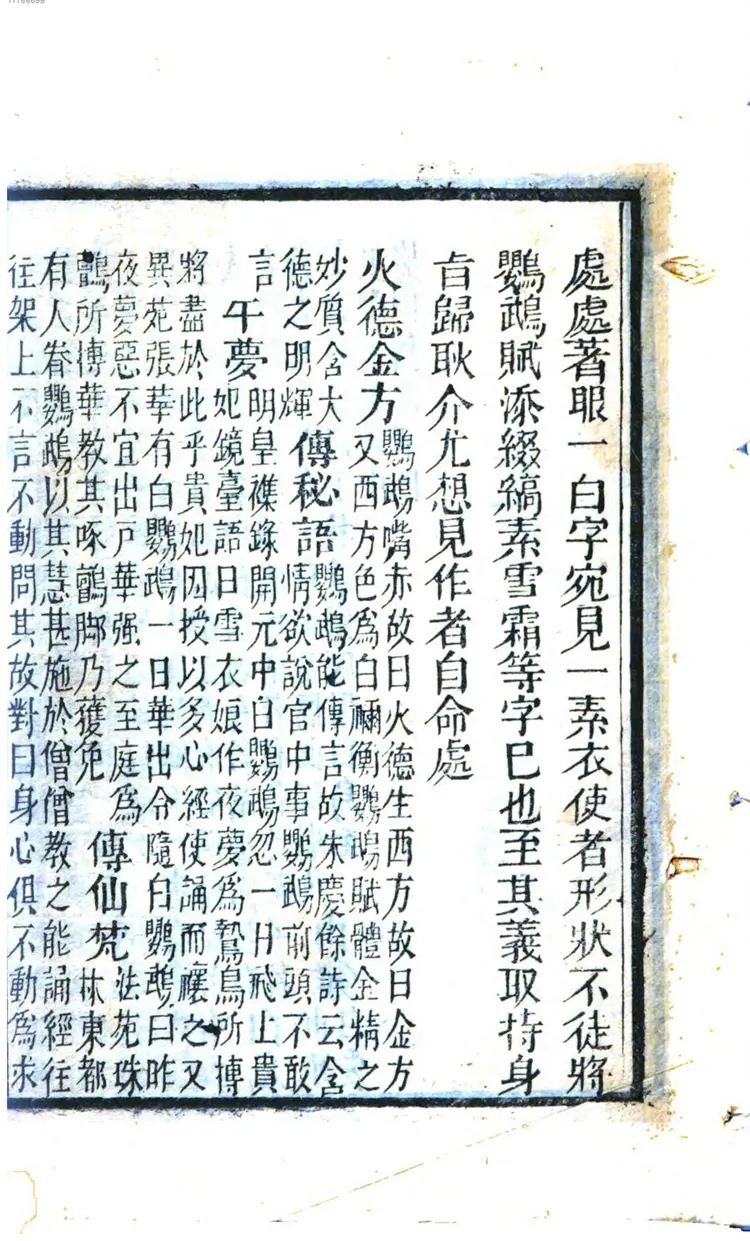 處處著眼一白字宛見一素衣使者形狀不徒將
鸚鵡賦添綴縞素雪霜等字巳也至其義取持身
旨歸耿介尤想見作者自命處
火德金方
鸚鵡嘴赤故曰火德生西方故曰金方
又西方色爲白禰衡鸚鵡賦體金精之
妙質含火
德之明輝
傳秘語
鸚鵡能傳言故朱慶餘詩云含
情欲說宮中事鸚鵡前頭不敢
言
午夢
明皇襍錄開元中白鸚鵡忽一日飛上貴
妃鏡臺語曰雪衣娘作夜夢爲鷙鳥所摶
將盡於此乎貴妃因授以多心經使誦而禳之又
異苑張華有白鸚鵡一日華出令隨白鸚鵡曰昨
夜夢惡不宜出戸華强之至庭爲
鸇所摶華教其啄鸇脚乃獲免
傳仙梵
法苑珠
林東都
有人養鸚鵡以其慧甚施於僧僧教之能誦經往
往架上不言不動問其故對曰身心俱不動爲求